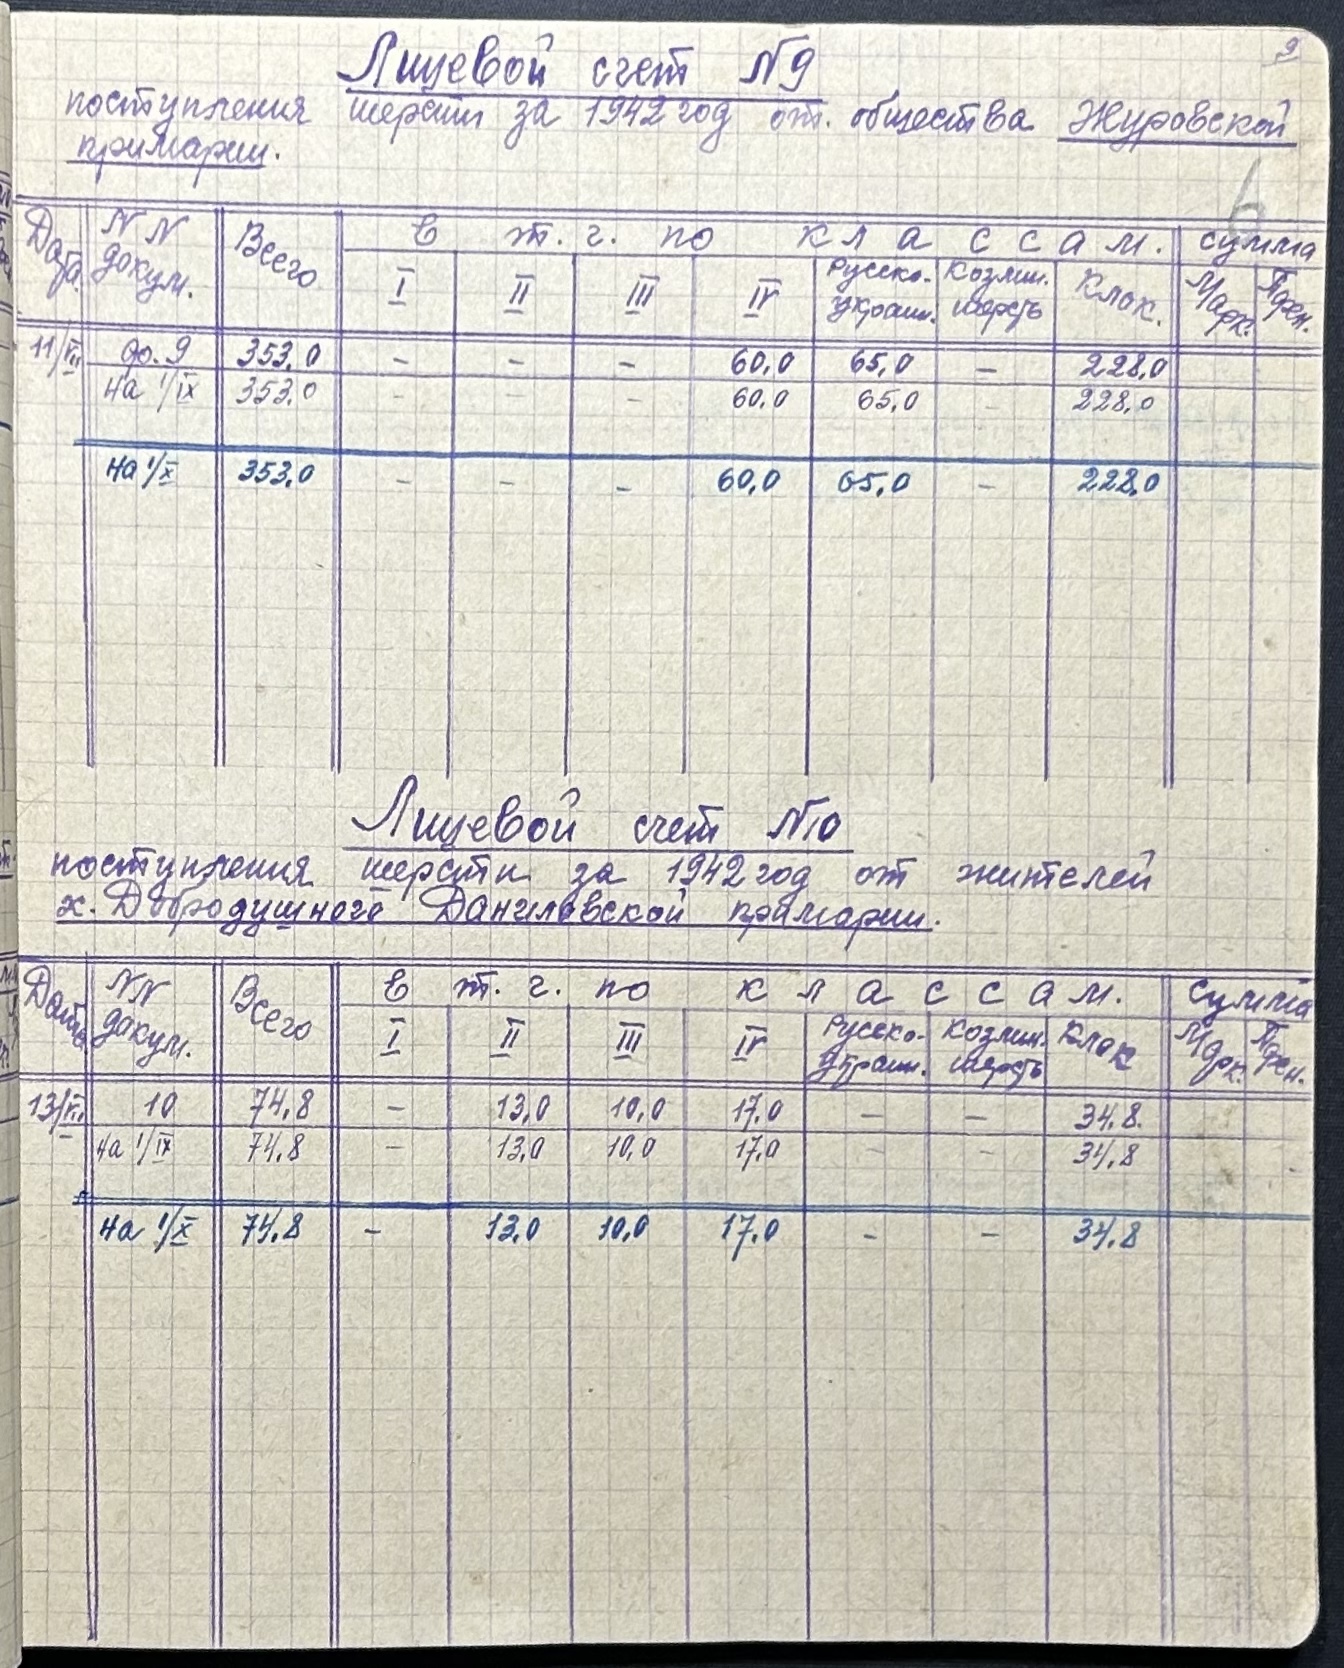 9
Лицевой счет N9
поступления шерсти за 1942 год от. общества Журовской
примарии.
Дата N N докум. Всего в т. г. по классам. сумма
I II III IV Русско-украин. Козлин. шерсть Клок. Марк. Пфен.
11/VIII до. 9 353,0 - - - 60,0 65,0 - 228,0
на 1/IX 353,0 - - - 60,0 65,0 - 228,0
на 1/X 353,0 - - - 60,0 65,0 - 228,0
Лицевой счет N10
поступления шерсти за 1942 год от жителей
х. Добродушного Даниловской примарии.
Дата NN докум. Всего в т. г. по классам. сумма
I II III IV Русско-украин. Козлин. шерсть Клок Марк. Пфен.
10 74,8 - 13,0 10,0 17,0 - - 34,8.
на 1/IX 74,8 - 13,0 10,0 17,0 - - 34,8
на 1/X 74,8 - 13,0 10,0 17,0 - - 34,8